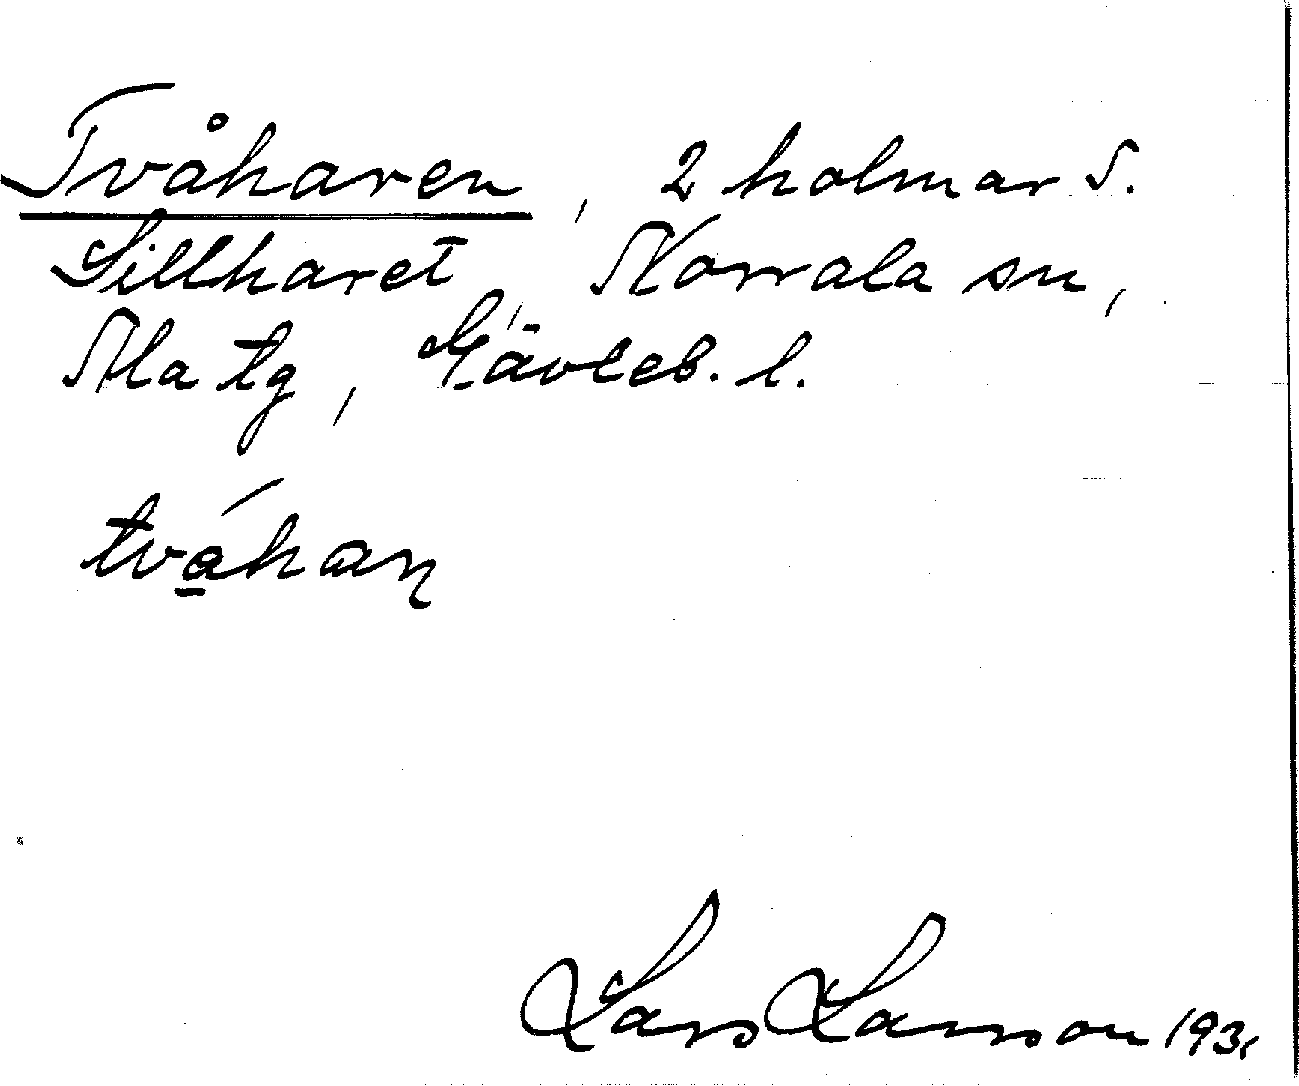 Tvåharen, 2 holmar S.
Sillharet, Norrala sn,
Ala tg, Gävleb. l.
tváhaɳ
Lars Larsson 1931